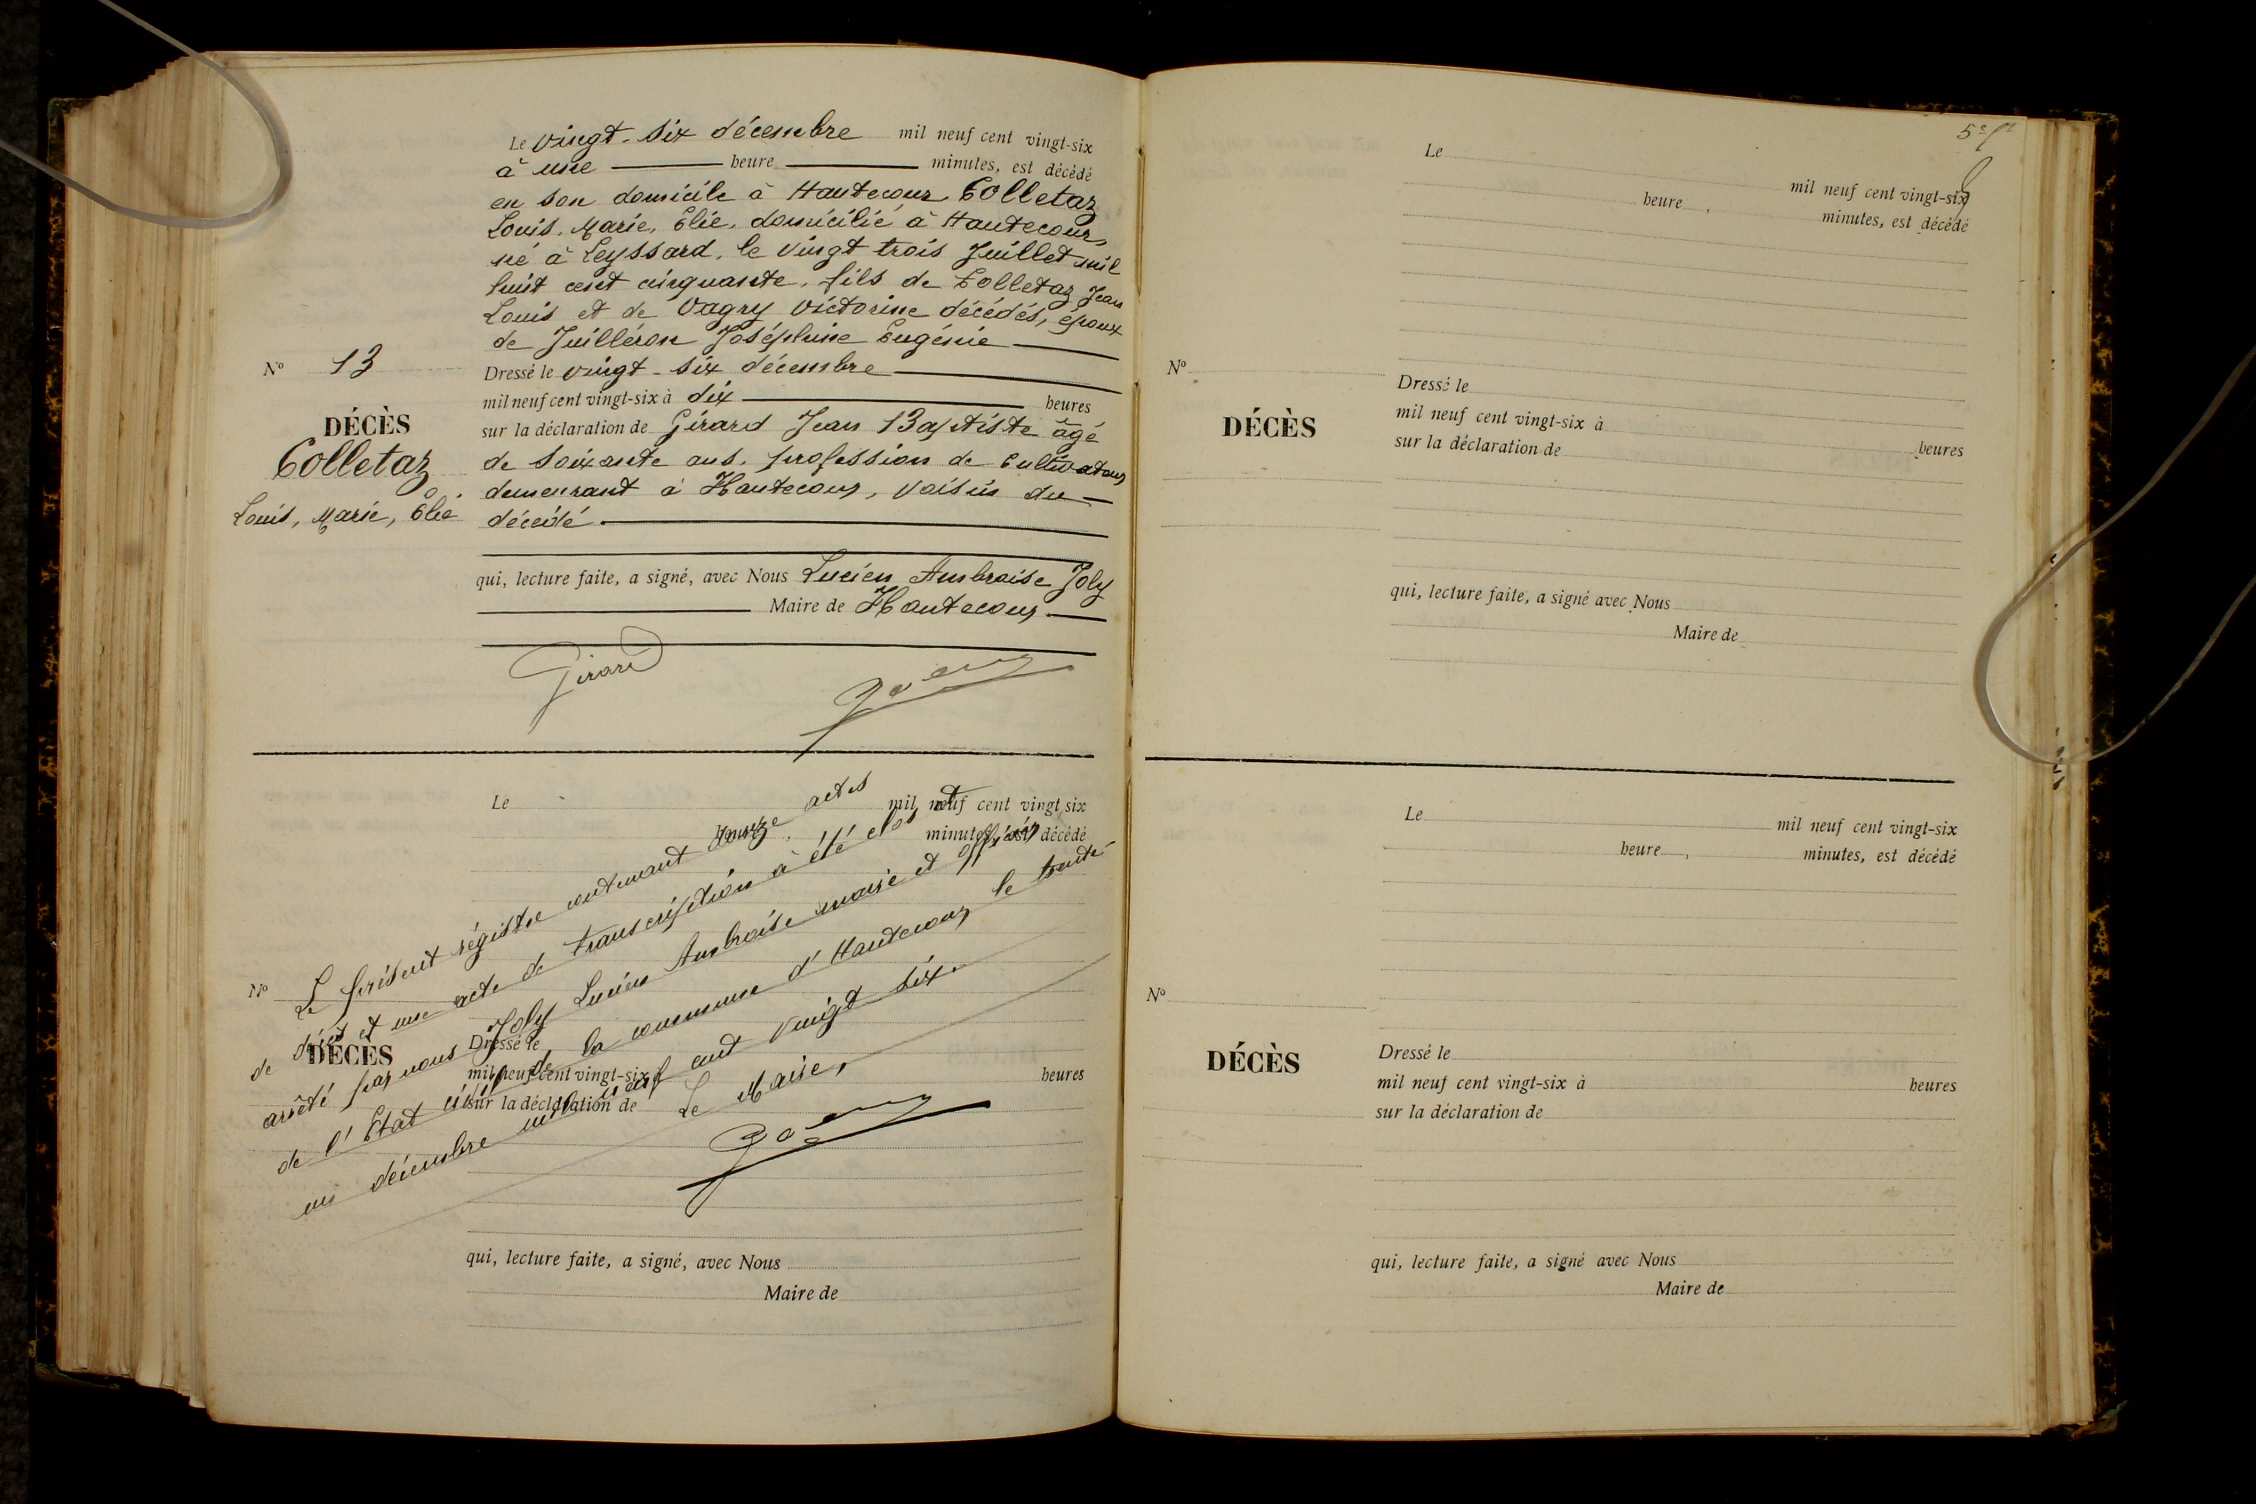 Le vingt-six décembre mil neuf cent vingt-six
à une heure minutes, est décédé
en son domicile à Hautecour Colletaz
Louis, Marie, Élie, domicilié à Hautecour,
né à Leyssard, le vingt trois Juillet mil
huit cent cinquante, fils de Colletaz Jean
Louis et de Vagry Victorine décédés, époux
de Juilléron Joséphine Eugénie
Dressé le vingt-six décembre
mil neuf cent vingt-six à dix heures
sur la déclaration de Girard Jean Baptiste âgé
de soixante ans, profession de cultivateur
demeurant à Hautecour, voisin du
décédé.
qui, lecture faite, a signé, avec Nous Lucien Ambroise Joly
Maire de Hautecour
Nº 13
DÉCÈS
Colletaz
Louis, Marie, Élie
Girard
Le mil neuf cent vingt six
minutes, est décédé
Nº
DÉCÈS
Dressé le
mil neuf cent vingt-six à heures
sur la déclaration de
qui, lecture faite, a signé, avec Nous
Maire de
Le présent régistre contenant actes
de décès et une acte de transcription à été clos et
arrêté par nous Joly Lucien Ambroise maire et officier
de l'État civil de la commune d'Hautecour le trente
un décembre mil neuf cent vingt six.
Le Maire,
Le
mil neuf cent vingt-six
heure minutes, est décédé
Nº
DÉCÈS
Dressé le
mil neuf cent vingt-six à heures
sur la déclaration de
qui, lecture faite, a signé avec Nous
Maire de
Le
mil neuf cent vingt-six
heure minutes, est décédé
Nº
DÉCÈS
Dressé le
mil neuf cent vingt-six à heures
sur la déclaration de
qui, lecture faite, a signé avec Nous
Maire de